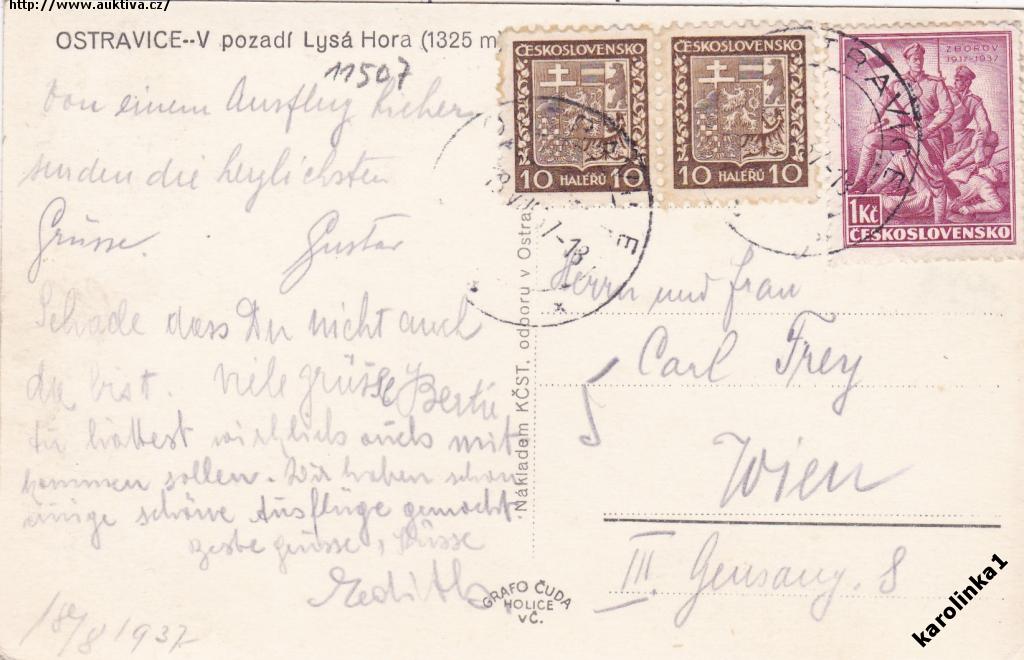 http://www.auktiva.cz/
OSTRAVICE--V pozadí Lysá Hora (1325 m
11507
Von einem Ausflug hieher
senden die herzlichsten
Grüsse. Gustav
Schade dass Du nicht auch
da bist. Viele grüsse Berta
Du hättest wirklich auch mit
kommen sollen. Wir haben schon
einige schöne Ausflüge gemacht.
grüsse, Küsse
Edith
18/8 1937
Nákladem KČST. odboru v Ostra
GRAFO ČUDA
HOLICE
VČ.
ČESKOSLOVENSKO
10 HALÉŘŮ 10
ČESKOSLOVENSKO
10 HALÉŘŮ 10
ZBOROV
1917-1937
1Kč
ČESKOSLOVENSKO
Herrn und Frau
Carl Frey
Wien
III. 8
karolinka1